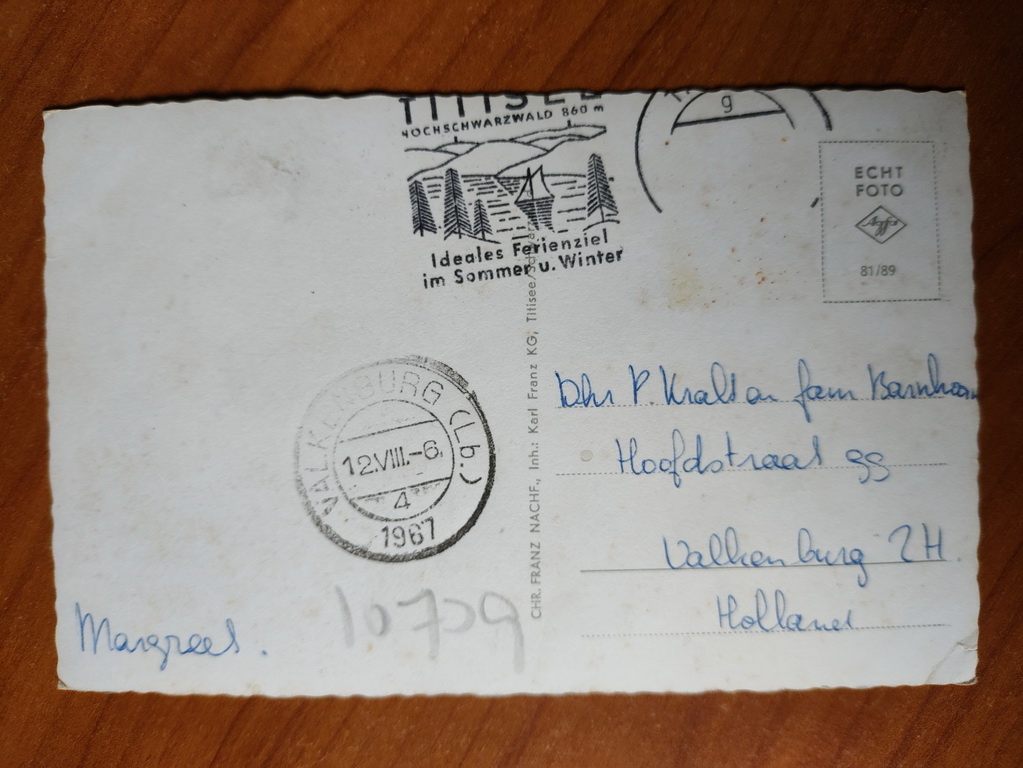 TITISEE
HOCHSCHWARZWALD 860 m
Ideales Ferienziel
im Sommer u. Winter
g
ECHT
FOTO
Agfa
81/89
VALKENBURG (Lb.)
12.VIII.-6.
4
1967
CHR. FRANZ NACHF., Inh.: Karl Franz KG, Titisee/Schwar
Dhr P. Kralt
fam
Hoofdstraat 99
Valkenburg ZH.
Holland
Margreet.